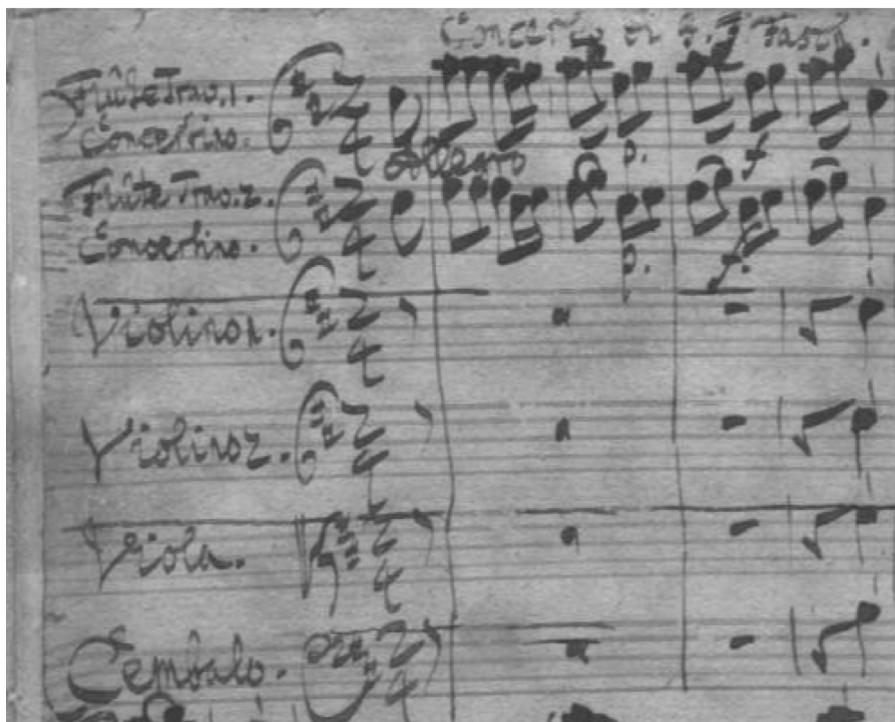 Concerto di J. F. Fasch.
Flûte Trav. 1.
Concertino.
Allegro
p. f
Flûte Trav. 2.
Concertino.
p. f.
Violino 1.
Violino 2.
Viola.
Cembalo.